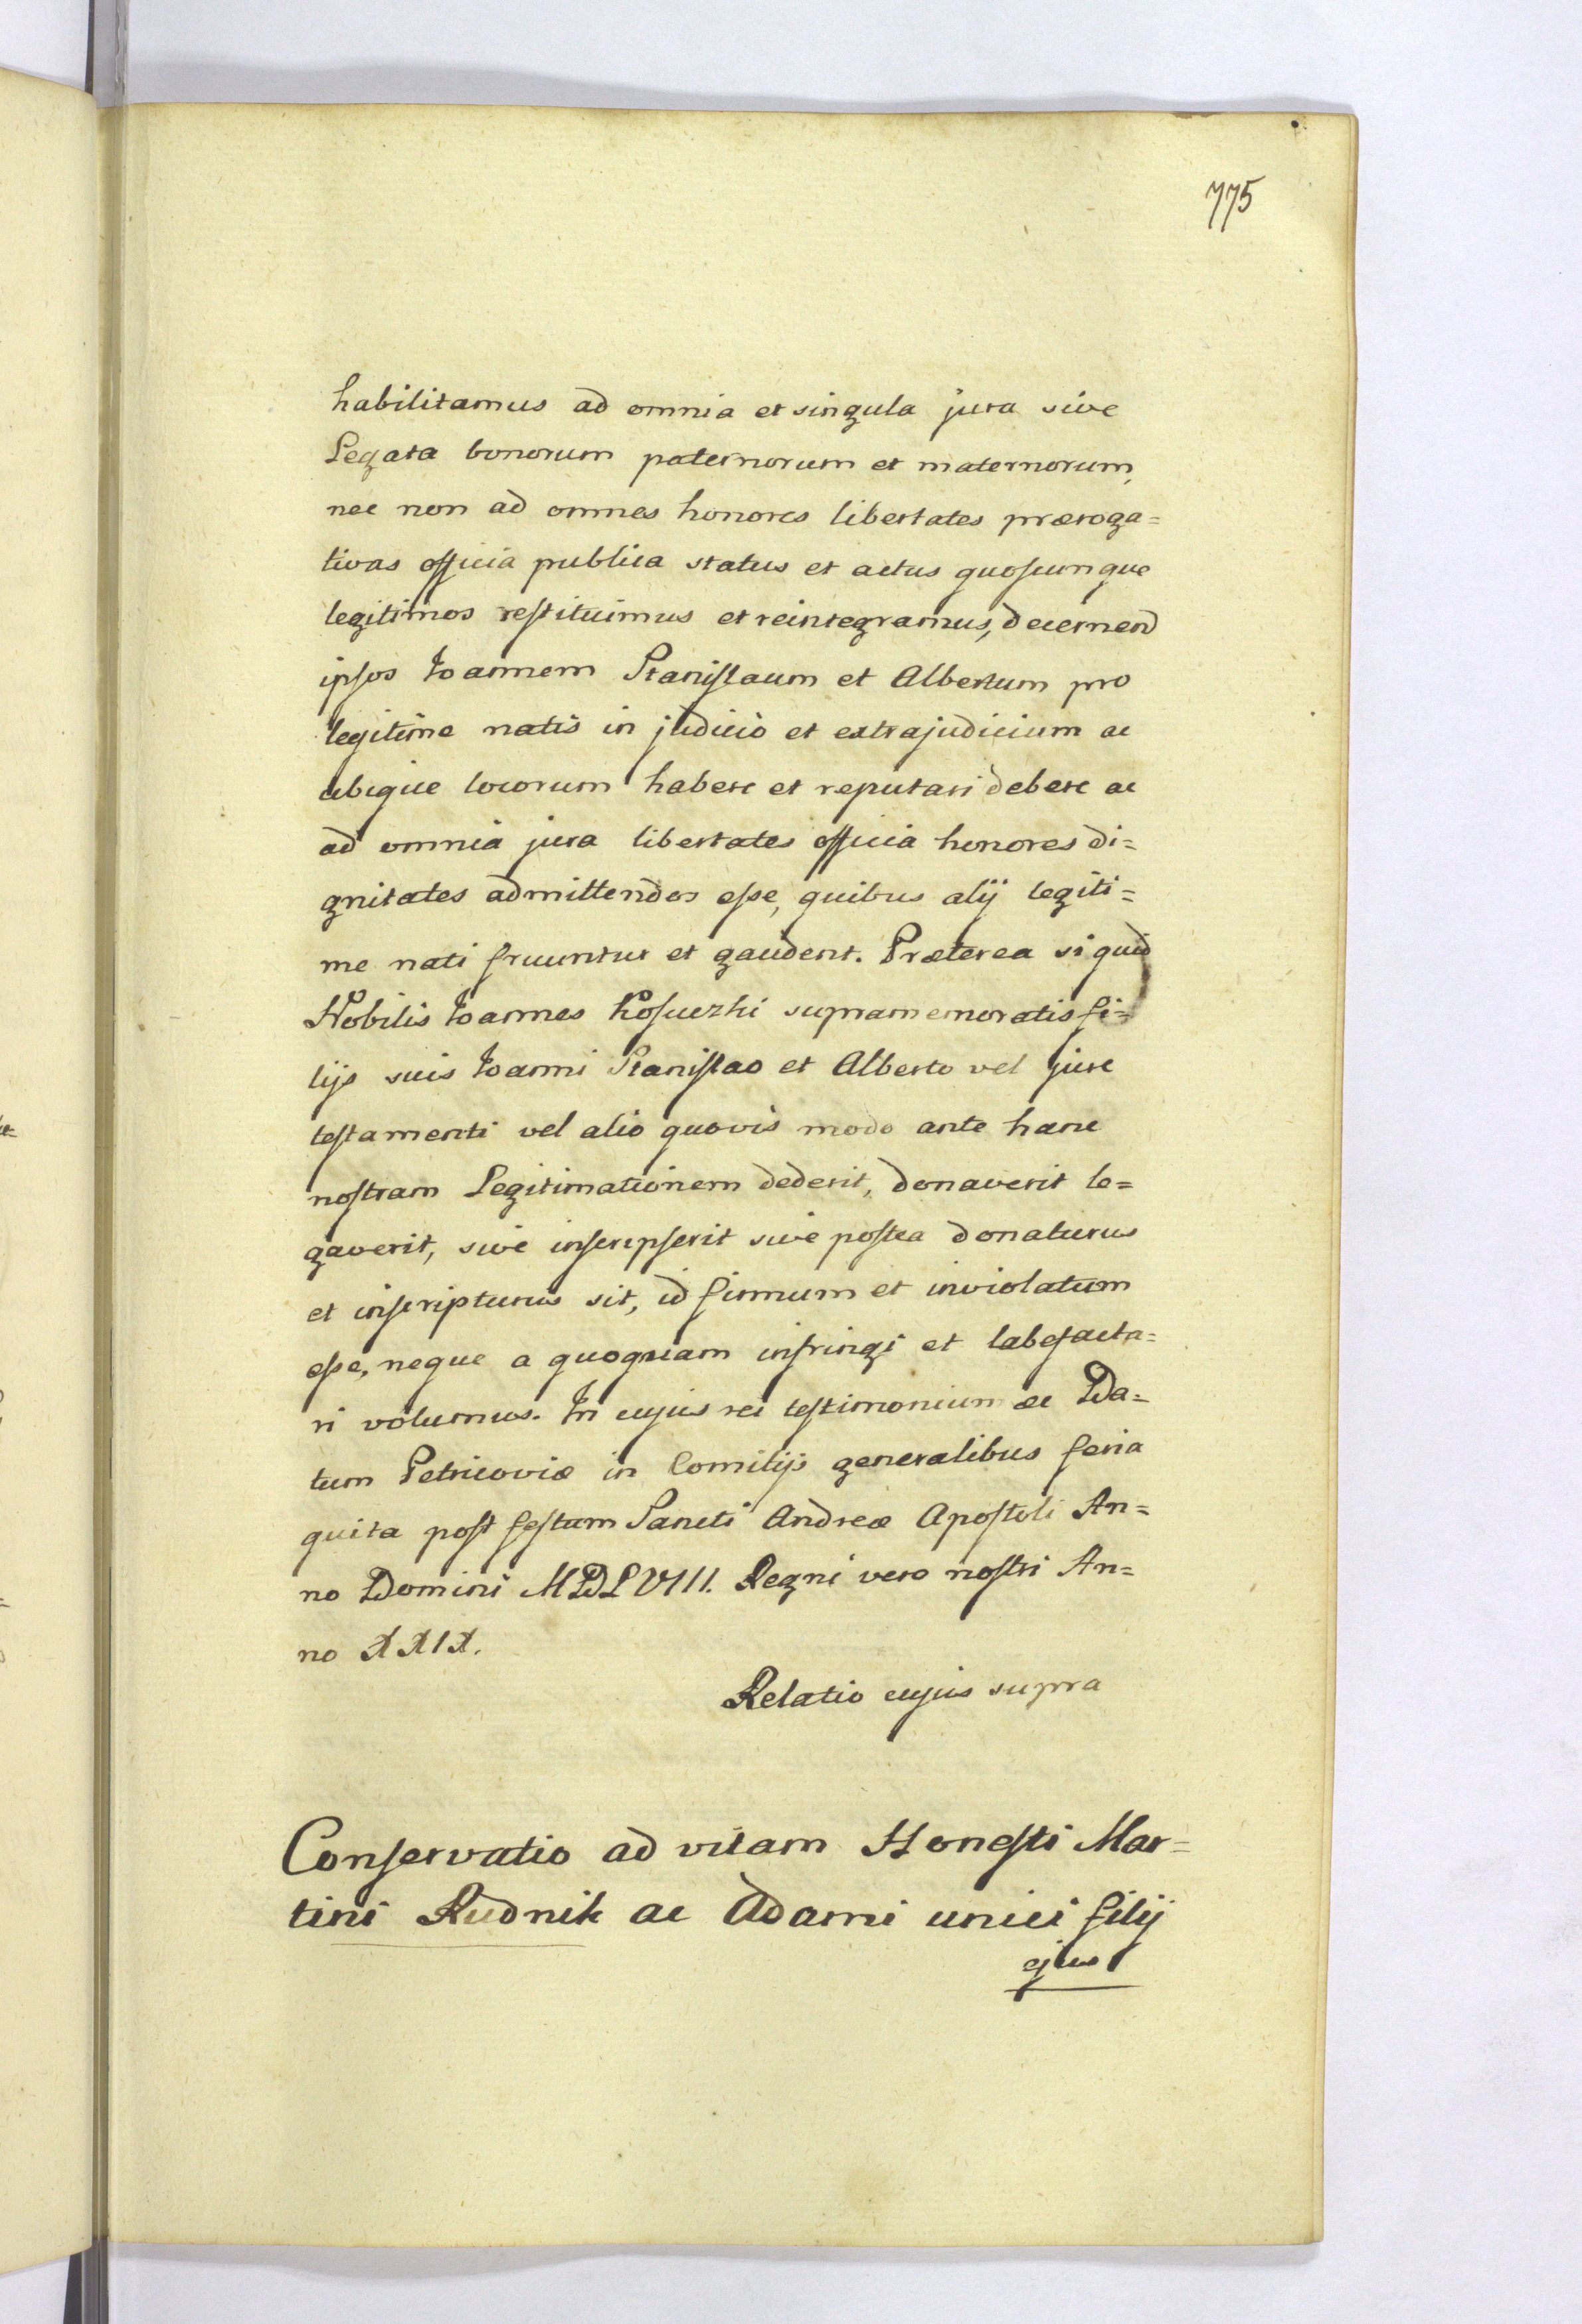 775
habilitamus ad omnia et singula jura sive
Legata bonorum paternorum et maternorum,
nec non ad omnes honores libertates præroga=
tivas officia publica status et actus quoscunque
legitimos restituimus et reintegramus, decernend
ipsos Joannem Stanislaum et Albertum pro
legitime natis in judicio et extrajudicium ac
ubique locorum habere et reputari debere ac
ad omnia jura libertates officia honores di=
gnitates admittendos esse, quibus alij legiti=
me nati fruuntur et gaudent. Præterea si quid
Nobilis Joannes Kosuczki supramemoratis fi=
lijs suis Joanni Stanislao et Alberto vel jure
testamenti vel alio quovis modo ante hanc
nostram Legitimationem dederit, donaverit le=
gaverit, sive inscripserit sive postea donaturus
et inscripturus sit, id firmum et inviolatum
esse, neque a quoquam infringi et labefacta=
ri volumus. In cujus rei testimonium ac Da=
tum Petricoviæ in Comitijs generalibus feria
quita post festum Sancti Andreæ Apostoli An=
no Domini MDLVIII. Regni vero nostri An=
no XXIX.
Relatio cujus supra
Conservatio ad vitam Honesti Mar=
tini Rudnik ac Adami unici filij
ejus